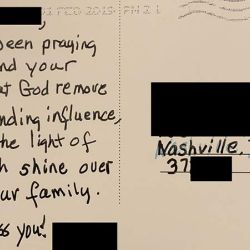 01 FEB 2013 PM 2 L
been praying
nd your
at God remove
nding influence,
the light of
h shine over
ur family.
ss you!
Nashville,
37